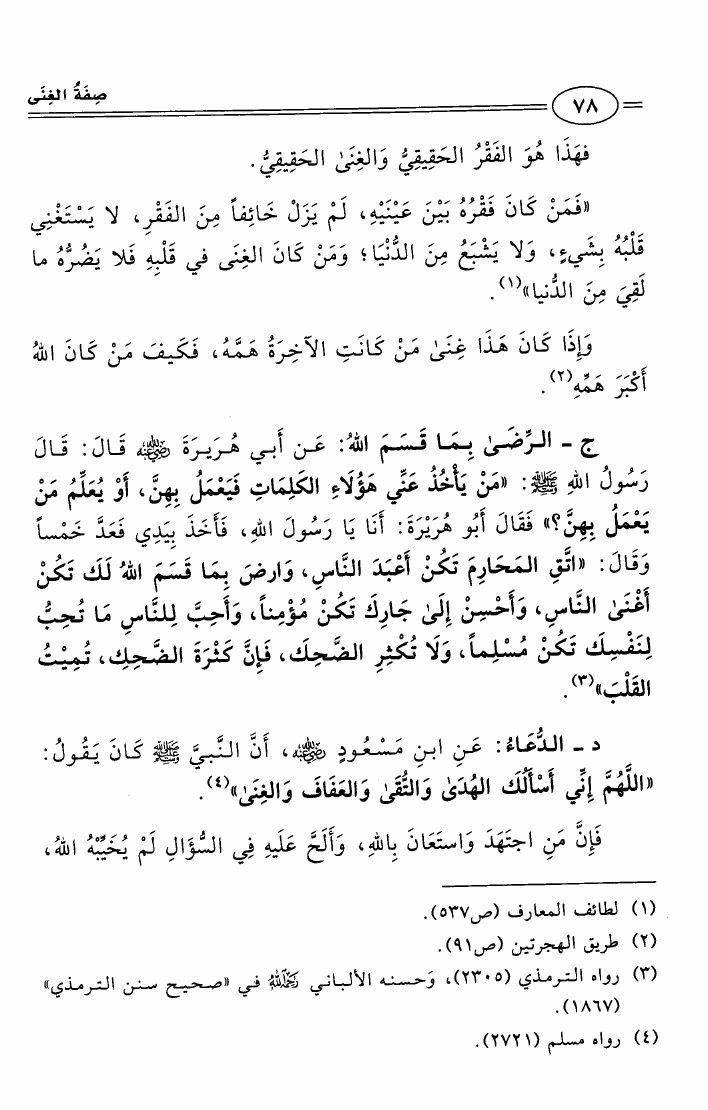 صِفَةُ الغِنَى
٧٨
فهَذَا هُوَ الفَقْرُ الحَقِيقِيُّ وَالغِنَىٰ الحَقِيقِيُّ.
«فَمَنْ كَانَ فَقْرُهُ بَيْنَ عَيْنَيْهِ، لَمْ يَزَلْ خَائِفاً مِنَ الفَقْرِ، لا يَسْتَغْنِي
قَلْبُهُ بِشَيءٍ، وَلا يَشْبَعُ مِنَ الدُّنْيَا؛ وَمَنْ كَانَ الغِنَى في قَلْبِهِ فَلا يَضُرُّهُ ما
لَقِيَ مِنَ الدُّنيا»(١).
وَإِذَا كَانَ هَذَا غِنَىٰ مَنْ كَانَتِ الآخِرَةُ هَمَّهُ، فَكَيفَ مَنْ كَانَ اللهُ
أَكْبَرَ هَمِّهِ(٢).
ج - الرِّضَىٰ بِمَا قَسَمَ اللهُ: عَن أَبي هُرَيرَةَ رضي الله عنه قَالَ: قَالَ
رَسُولُ اللهِ ﷺ: «مَنْ يَأْخُذُ عَنِّي هَؤُلَاءِ الكَلِمَاتِ فَيَعْمَلُ بِهِنَّ، أَوْ يُعَلِّمُ مَنْ
يَعْمَلُ بِهِنَّ؟» فَقَالَ أَبُو هُرَيْرَةَ: أَنَا يَا رَسُولَ اللهِ، فَأَخَذَ بِيَدِي فَعَدَّ خَمْساً
وَقَالَ: «اتَّقِ المَحَارِمَ تَكُنْ أَعْبَدَ النَّاسِ، وَارضَ بِمَا قَسَمَ اللهُ لَكَ تَكُنْ
أَغْنَىٰ النَّاسِ، وَأَحْسِنْ إِلَىٰ جَارِكَ تَكُنْ مُؤْمِناً، وَأَحِبَّ لِلنَّاسِ مَا تُحِبُّ
لِنَفْسِكَ تَكُنْ مُسْلِماً، وَلَا تُكْثِرِ الضَّحِكَ، فَإِنَّ كَثْرَةَ الضَّحِكِ، تُمِيْتُ
القَلْبَ»(٣).
د - الدُّعَاءُ: عَنِ ابنِ مَسْعُودٍ رضي الله عنه، أَنَّ النَّبِيَّ ﷺ كَانَ يَقُولُ:
«اللَّهُمَّ إِنِّي أَسْأَلُكَ الهُدَىٰ وَالتُّقَىٰ وَالعَفَافَ وَالغِنَىٰ»(٤).
فَإِنَّ مَنِ اجتَهَدَ وَاستَعَانَ بِاللهِ، وَأَلَحَّ عَلَيهِ فِي السُّؤَالِ لَمْ يُخَيِّبْهُ اللهُ،
(١) لطائف المعارف (ص٥٣٧).
(٢) طريق الهجرتين (ص٩١).
(٣) رواه الترمذي (٢٣٠٥)، وَحسنه الألباني رحمه الله في «صحيح سنن الترمذي»
(١٨٦٧).
(٤) رواه مسلم (٢٧٢١).